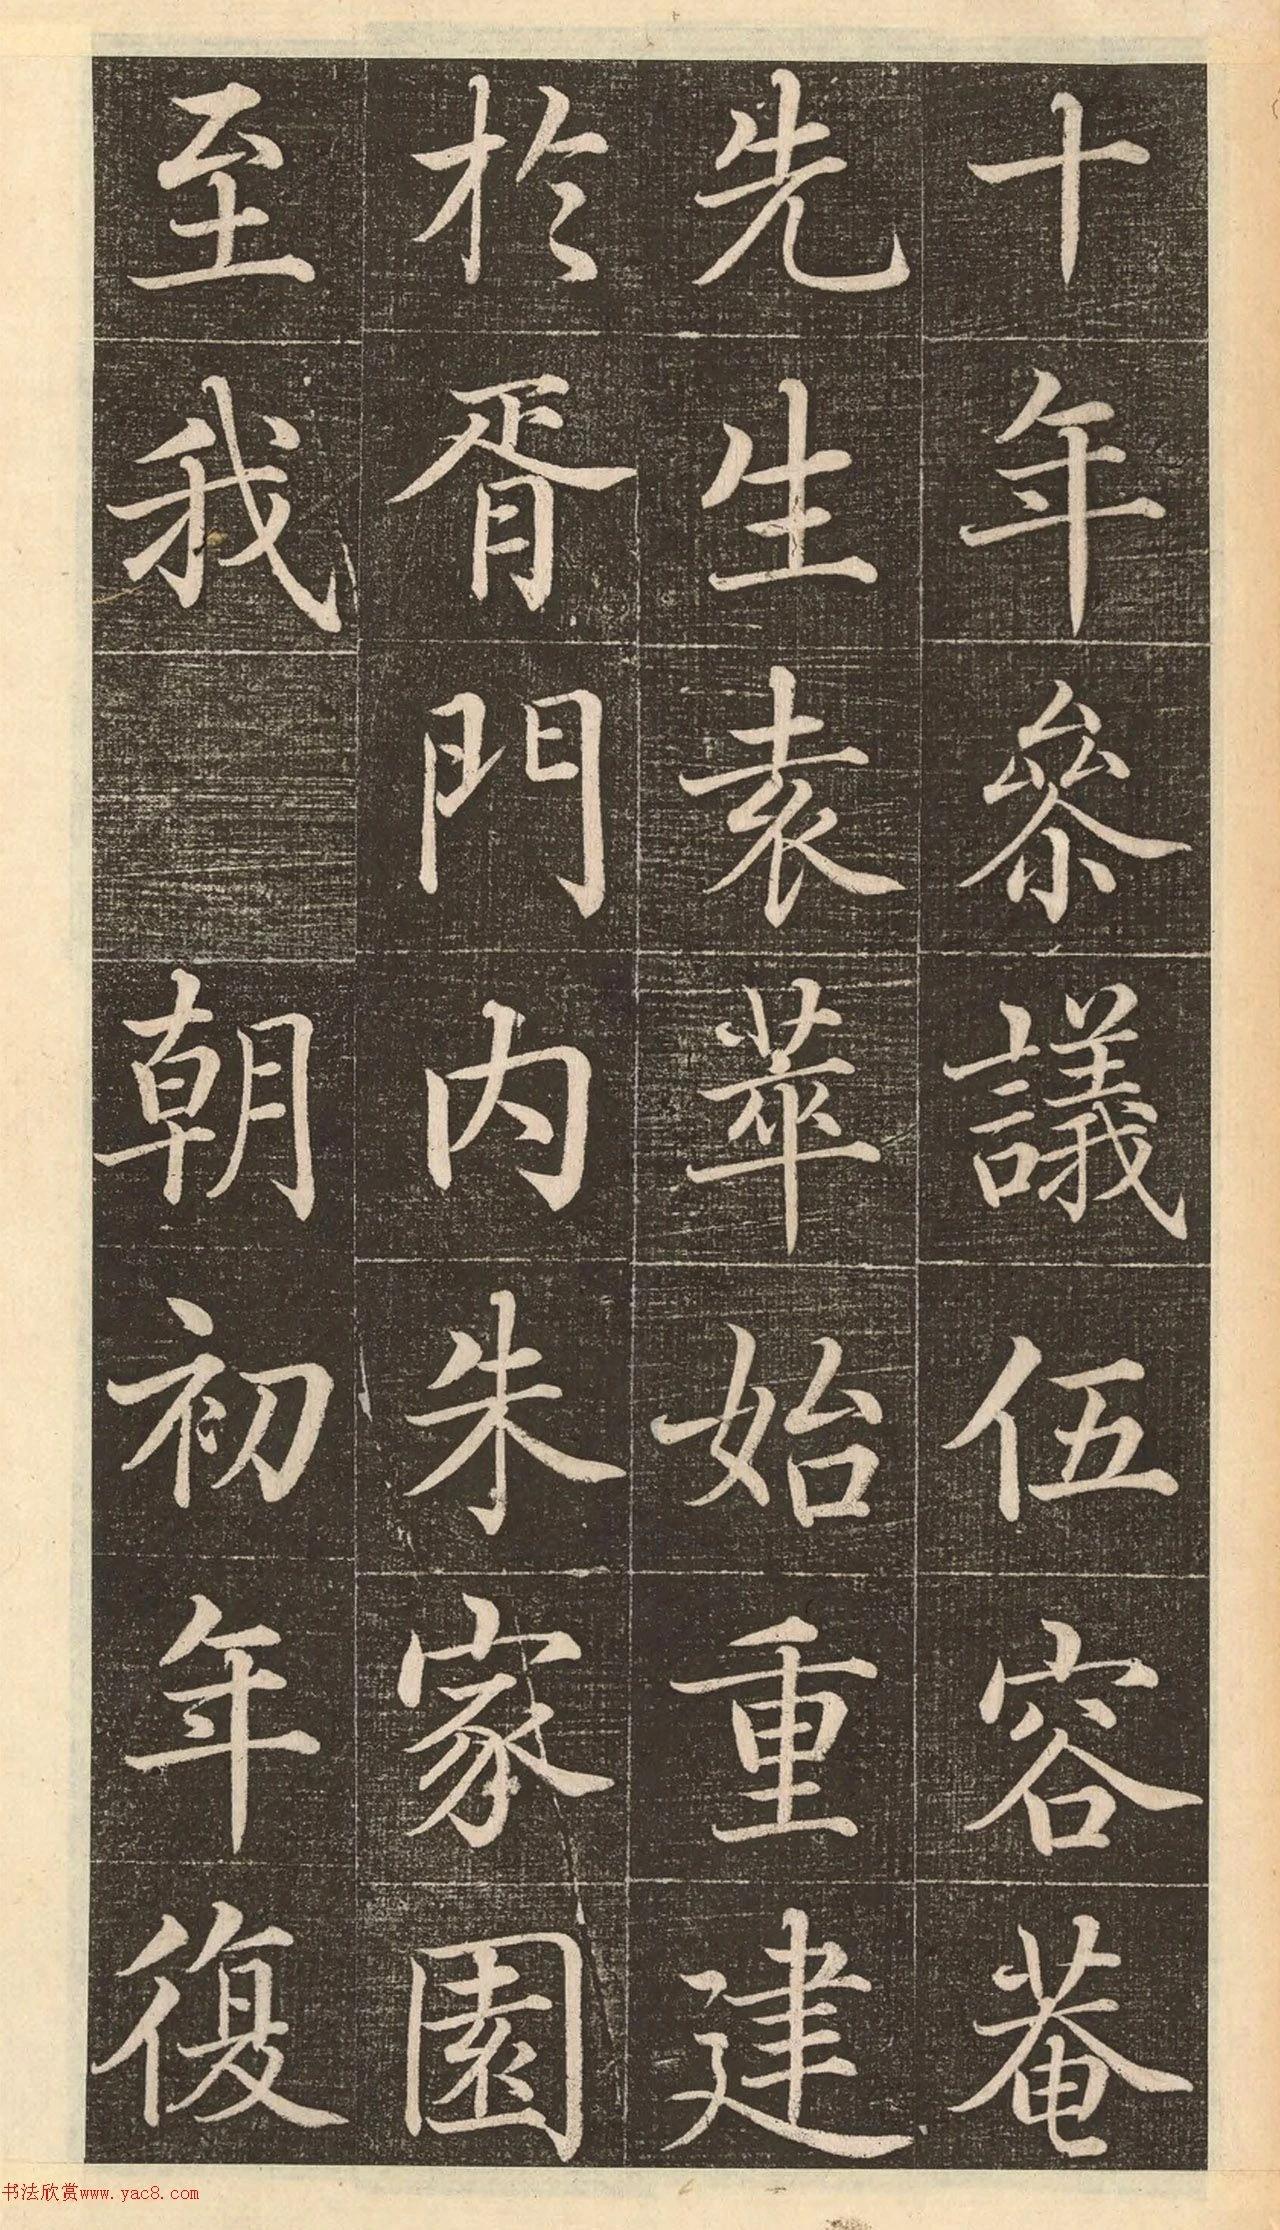 十年參議伍容菴
先生袁萃始重建
於胥門内朱家園
至我 朝初年復
书法欣赏www.yac8.com